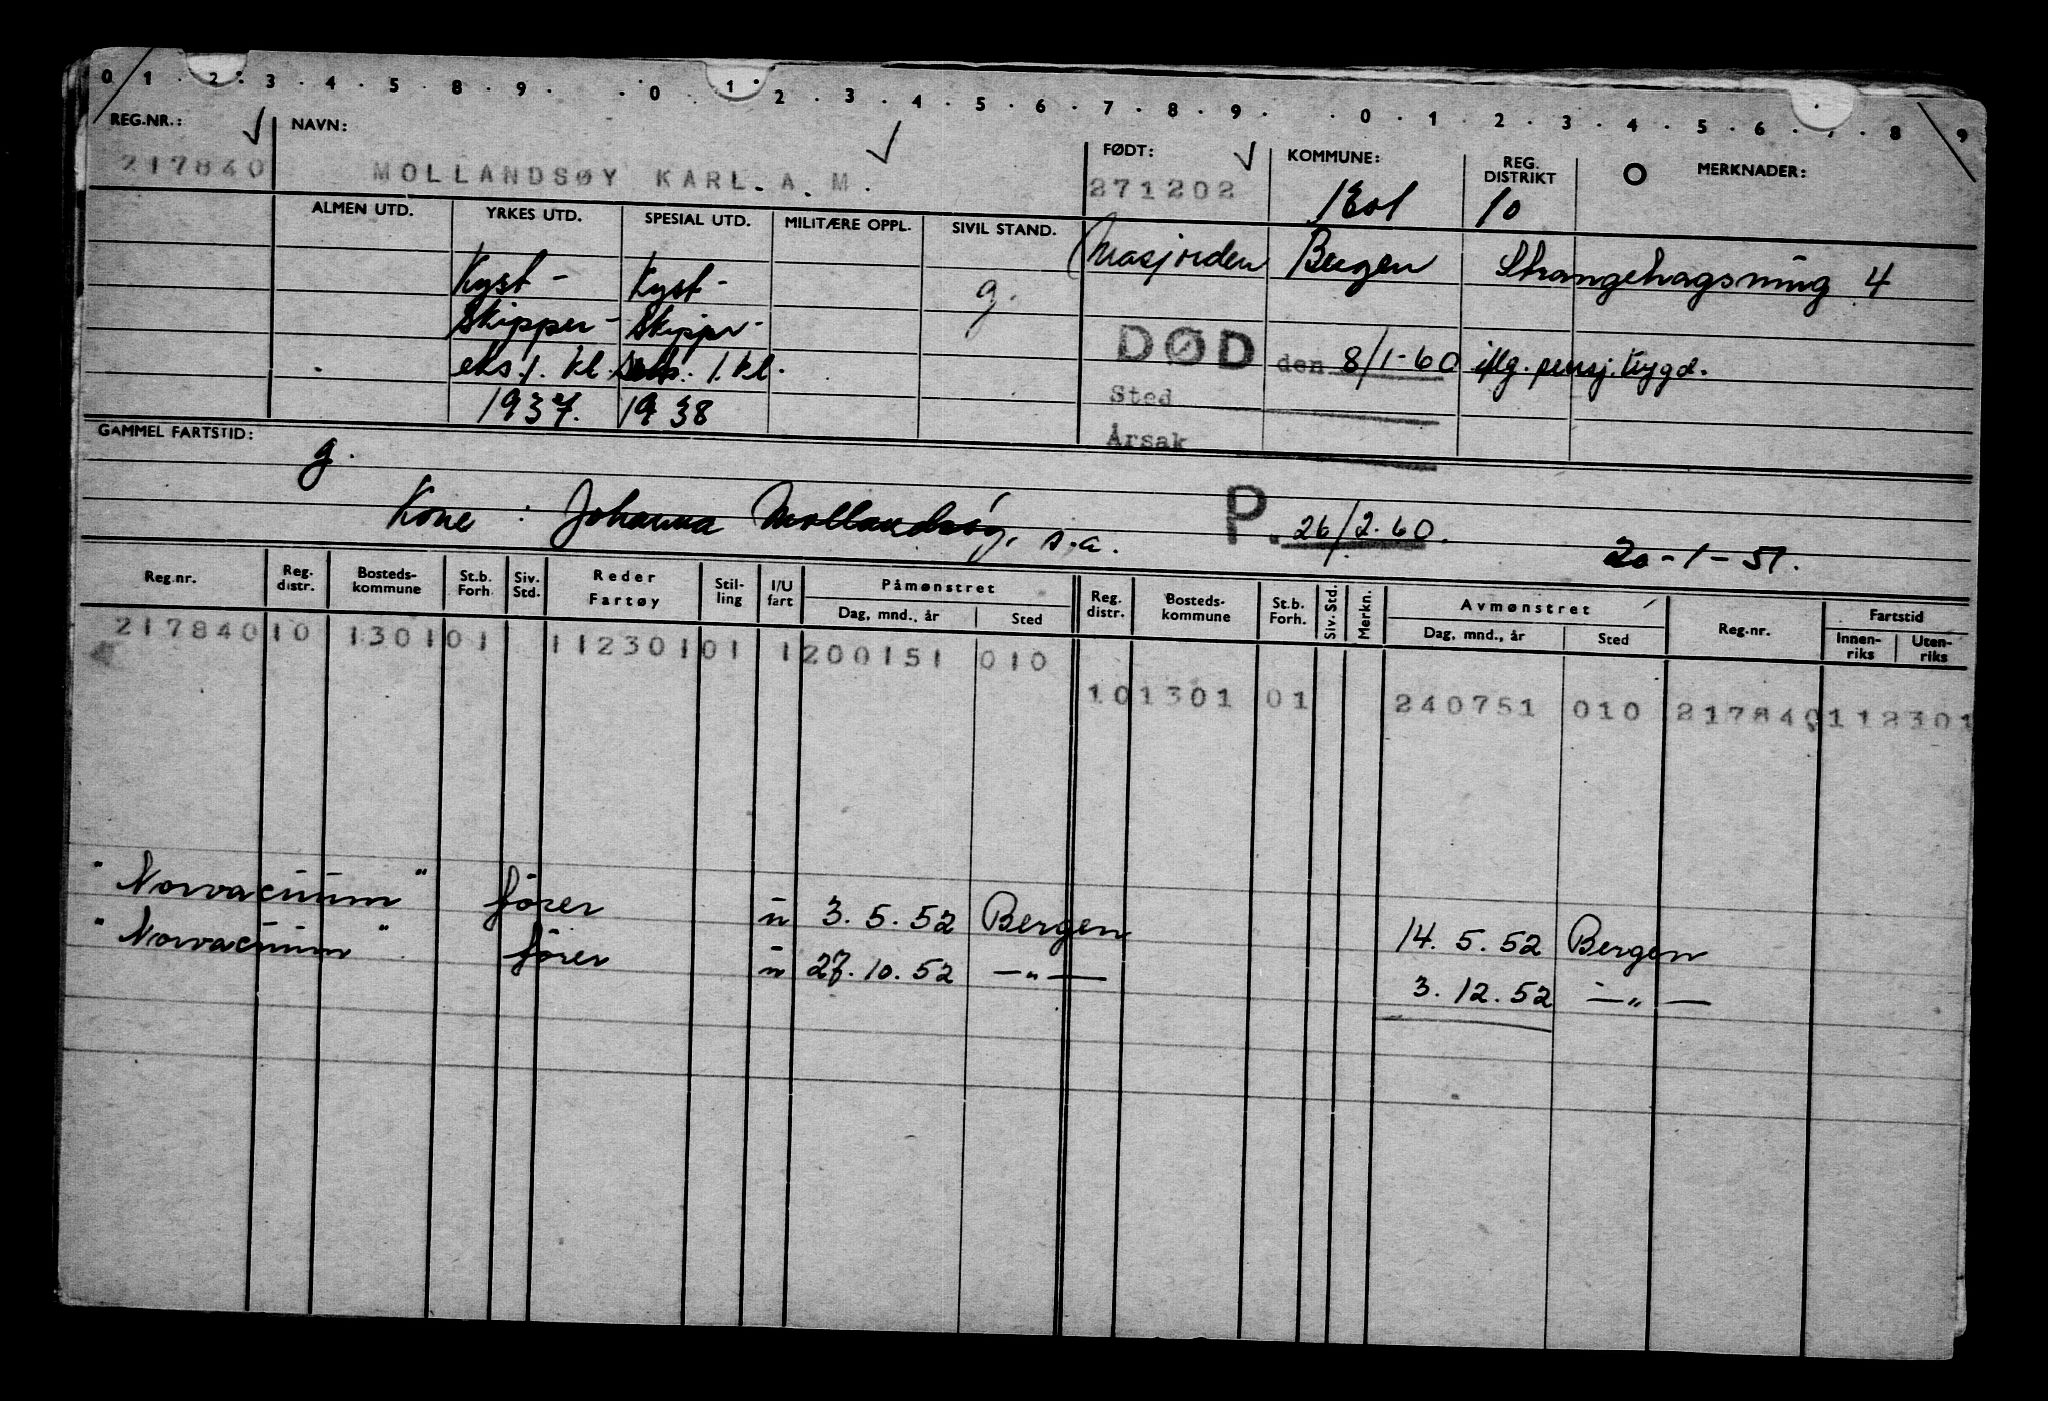 0 1 . 2 . 3 . 4 . 5 . 8 . 9 . . 0 . 1 . 2 . 3 . 4 . 5 . 6 . 7 . 8 . 9 . . 0 . 1 . 2 . 3 . 4 . 5 . 6 . 7 . 8 9
REG.NR.: NAVN: FØDT: KOMMUNE: REG. DISTRIKT MERKNADER:
217840 MOLLANDSØY KARL. A. M. 271202 1301 10
ALMEN UTD. YRKES UTD. SPESIAL UTD. MILITÆRE OPPL. SIVIL STAND.
Bergen Strangehagsmug 4
Kyst- Kyst- g.
Skipper- Skippr-
DØD den 8/1-60 iflg. pensj. trygd.
eks. 1. kl. 1. kl.
Sted
1937. 1938
Årsak
GAMMEL FARTSTID:
g.
Kone : Johanna Mollandsøy, s.a. P. 26/2.60. 20-1-51.
Reg.nr. Reg. distr. Bosteds- kommune St.b. Forh. Siv. Std. Reder Fartøy Stil- ling I/U fart Påmønstret Reg. distr. Bosteds- kommune St.b. Forh. Siv. Std. Merkn. Avmønstret Reg.nr. Fartstid
Dag, mnd., år Sted Dag, mnd., år Sted Innen- riks Uten- riks
217840 10 1301 01 112301 01 1 200151 010
10 1301 01 240751 010 217840 112301
"Norvacuum" fører u 3.5.52 Bergen 14.5.52 Bergen
"Norvacuum" fører u 27.10.52 —"— 3.12.52 —"—